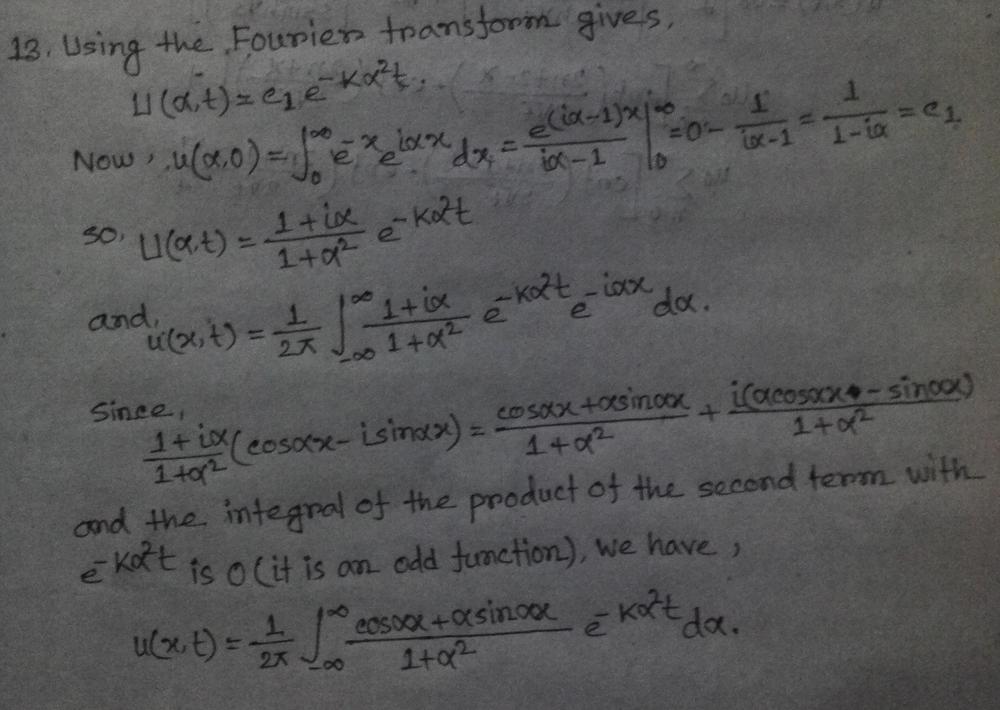 13. Using the Fourier transform gives,
U(α,t) = c₁e^{-kα²t}.
Now, u(α,0) = ∫₀^∞ e^{-x} e^{iαx} dx = e^{(iα-1)x}/(iα-1) |₀^∞ = 0 - 1/(iα-1) = 1/(1-iα) = c₁
so, U(α,t) = (1+iα)/(1+α²) e^{-kα²t}
and, u(x,t) = 1/2π ∫_{-∞}^∞ (1+iα)/(1+α²) e^{-kα²t} e^{-iαx} dα.
Since,
(1+iα)/(1+α²) (cosαx - isinαx) = (cosαx + αsinαx)/(1+α²) + i(αcosαx - sinαx)/(1+α²)
and the integral of the product of the second term with
e^{-kα²t} is 0 (it is an odd function), we have,
u(x,t) = 1/2π ∫_{-∞}^∞ (cosαx + αsinαx)/(1+α²) e^{-kα²t} dα.